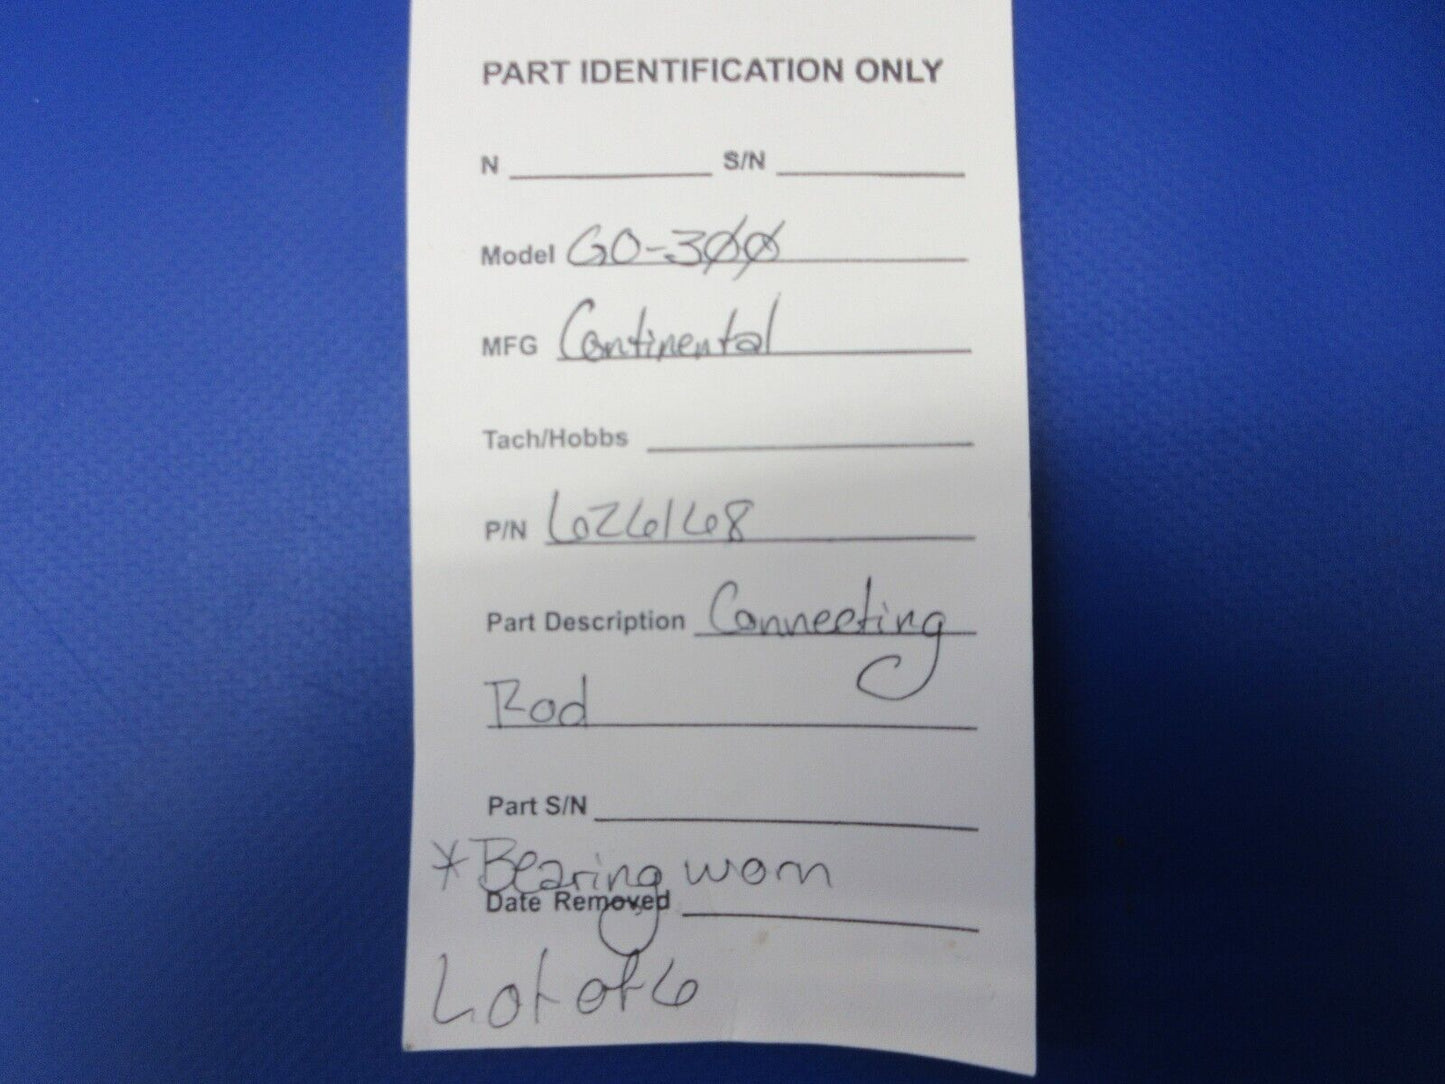 PART IDENTIFICATION ONLY
N S/N
Model GO-300
MFG Continental
Tach/Hobbs
P/N 626168
Part Description Connecting
Rod
Part S/N
*Bearing worn
Date Removed
Lot of 6